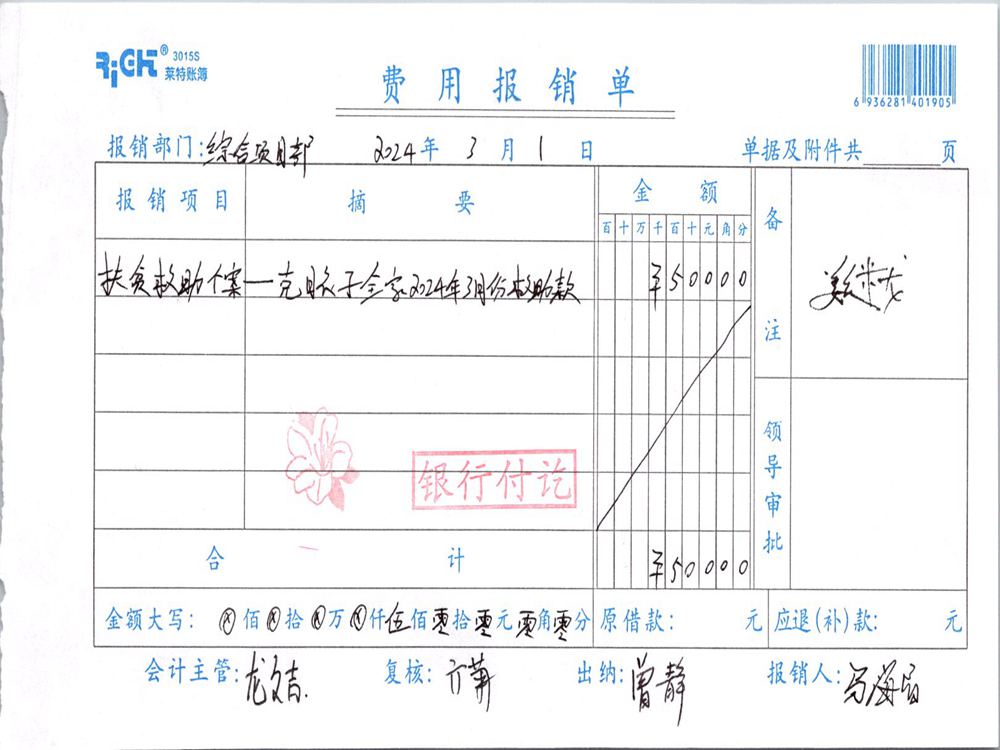 RiCH® 3015S
莱特账簿
费用报销单
6 936281 401905
报销部门:综合项目部 2024年 3月 1日 单据及附件共 页
报销项目 摘要 金额 备注
百十万千百十元角分
扶贫救助个案—克日衣子全家2024年3月份救助款 ¥50000
银行付讫
领导审批
合计 ¥50000
金额大写: ⊗佰⊗拾⊗万⊗仟伍佰零拾零元零角零分 原借款: 元 应退(补)款: 元
会计主管: 龙文吉 复核: 出纳: 曾静 报销人: